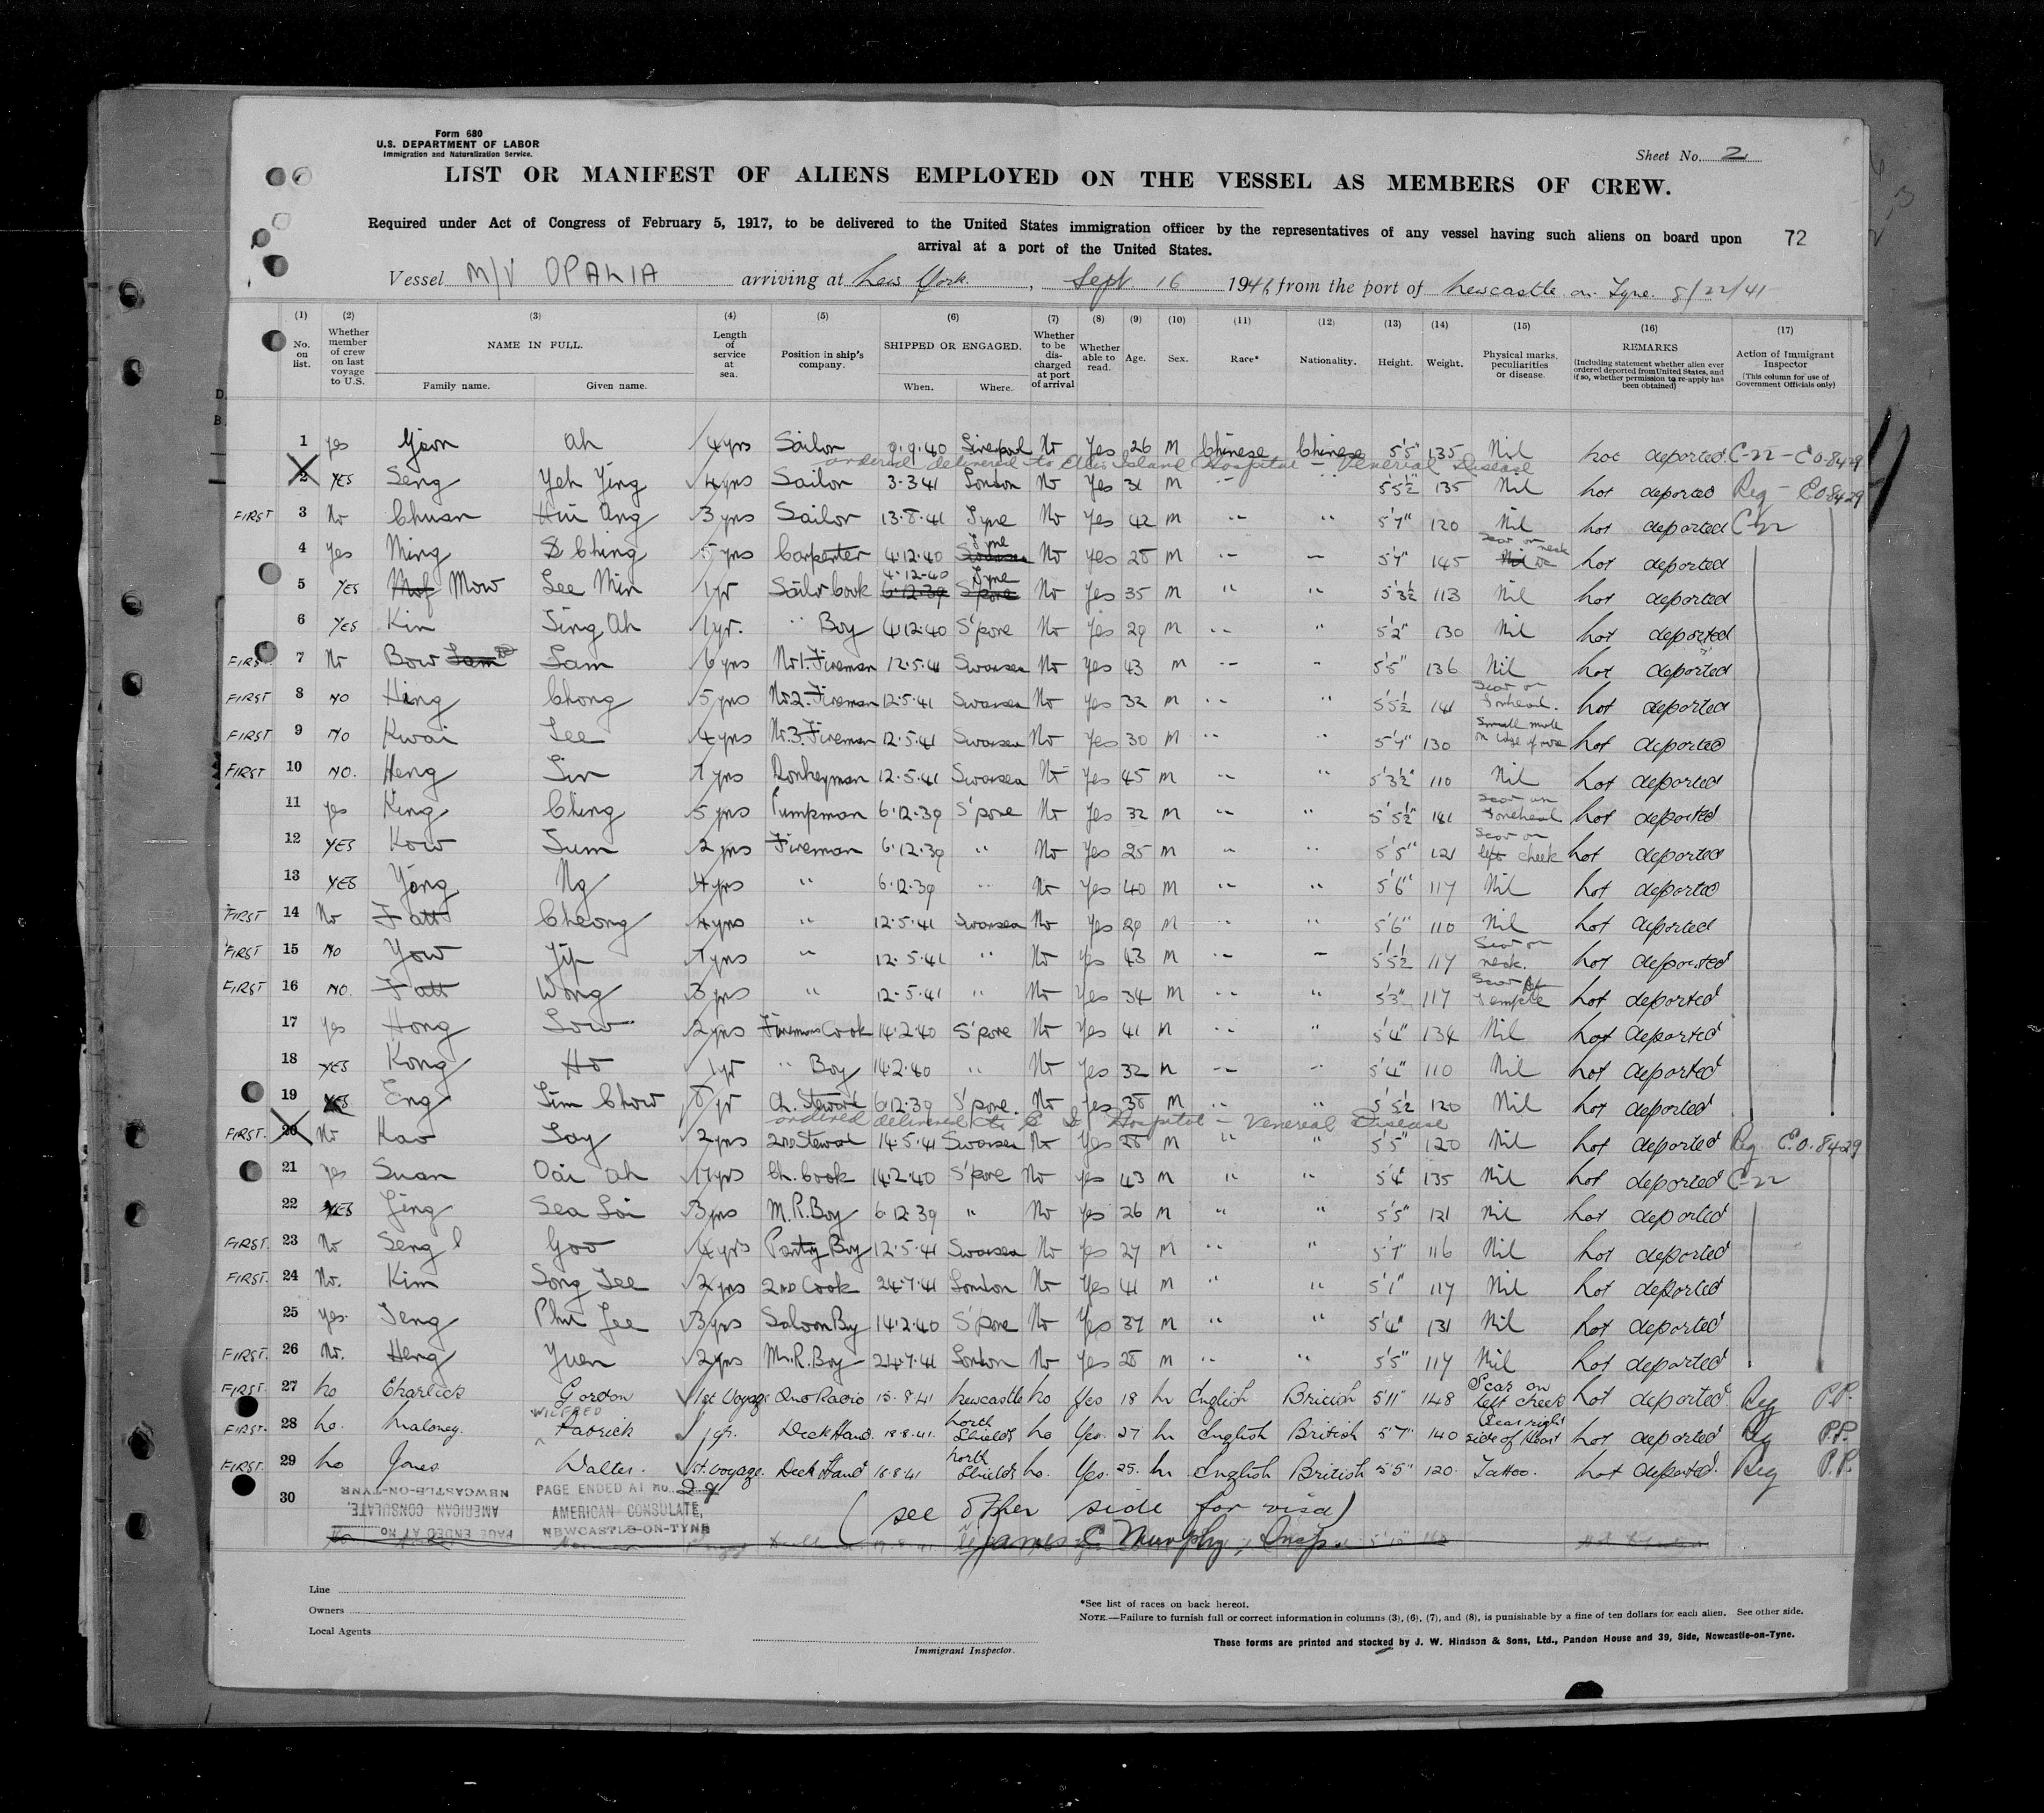 Form 680
U.S. DEPARTMENT OF LABOR
Immigration and Naturalization Service.
Sheet No. 2
LIST OR MANIFEST OF ALIENS EMPLOYED ON THE VESSEL AS MEMBERS OF CREW.
Required under Act of Congress of February 5, 1917, to be delivered to the United States immigration officer by the representatives of any vessel having such aliens on board upon
arrival at a port of the United States.
72
Vessel M/V OPALIA arriving at New York, Sept. 16 1941 from the port of Newcastle on Tyne 8/22/41
(1) (2) (3) (4) (5) (6) (7) (8) (9) (10) (11) (12) (13) (14) (15) (16) (17)
No. on list. Whether member of crew on last voyage to U.S. NAME IN FULL. Family name. Given name. Length of service at sea. Position in ship's company. SHIPPED OR ENGAGED. When. Where. Whether to be discharged at port of arrival Whether able to read. Age. Sex. Race* Nationality. Height. Weight. Physical marks, peculiarities or disease. REMARKS (Including statement whether alien ever ordered deported from United States, and if so, whether permission to re-apply has been obtained) Action of Immigrant Inspector (This column for use of Government Officials only)
1 yes ah 4 yrs Sailor 9.9.40 Liverpool No Yes 26 M Chinese Chinese 5'5" 135 Nil not deported C-22 - E0.8429
ordered delivered to Ellis Island Hospital - Venereal Disease
2 YES Seng Yeh Ying 4 yrs Sailor 3.3.41 London No Yes 31 M " 5'5½" 135 Nil not deported Reg - E0 8429
FIRST 3 No Chuan Ang 3 yrs Sailor 13.8.41 Tyne No Yes 42 M " " 5'7" 120 Nil not deported C-22
4 yes Ming Ching 5 yrs Carpenter 4.12.40 Tyne No yes 28 M " " 5'7" 145 Scar on neck not deported
5 YES Mow Lee Min 1 yr Sailor Cook 4.12.40 Tyne No Yes 35 M " " 5'3½ 113 Nil not deported
6 YES Kim Sing Ah 1 yr. " Boy 4.12.40 S'pore No Yes 29 M " " 5'2" 130 Nil not deported
FIRST 7 No Bow Sam 6 yrs No 1. Fireman 12.5.41 Swansea No Yes 43 M " " 5'5" 136 Nil not deported
FIRST 8 NO Hing Chong 5 yrs No 2. Fireman 12.5.41 Swansea No Yes 32 M " " 5'5½ 141 Scar on Forehead. not deported
FIRST 9 NO Kwai Lee 4 yrs No. 3. Fireman 12.5.41 Swansea No Yes 30 M " " 5'7" 130 Small mole on edge of nose not deported
FIRST 10 NO. Heng Lin 7 yrs Donkeyman 12.5.41 Swansea No Yes 45 M " " 5'3½" 110 Nil not deported
11 yes King Ching 5 yrs Pumpman 6.12.39 S'pore No Yes 32 M " " 5'5½" 181 Scar on Forehead not deported
12 YES Kow Sum 2 yrs Fireman 6.12.39 " No Yes 25 M " " 5'5" 121 Scar on left cheek not deported
13 YES Yong Ng 4 yrs " 6.12.39 " No Yes 40 M " " 5'6" 117 Nil not deported
FIRST 14 No Fatt Cheong 4 yrs " 12.5.41 Swansea No Yes 29 M " " 5'6" 110 Nil not deported
FIRST 15 NO Yow Yip 7 yrs " 12.5.41 " No Yes 43 M " " 5'5½ 117 Scar on neck. not deported
FIRST 16 NO. Fatt Wong 3 yrs " 12.5.41 " No Yes 34 M " " 5'3" 117 Scar Temple not deported
17 yes Hong Low 2 yrs Firemans Cook 14.2.40 S'pore No Yes 41 M " " 5'4" 134 Nil not deported
18 YES Kong Ho 1 yr " Boy 14.2.40 " No Yes 32 M " " 5'4" 110 Nil not deported
19 YES Eng Lim Chow 8 yr Ch. Steward 6.12.39 S'pore. No Yes 38 M " " 5'5½ 120 Nil not deported
ordered delivered to E I Hospital - Venereal Disease
FIRST. 20 No Kao Lay 2 yrs 2nd Steward 14.5.41 Swansea No Yes 28 M " " 5'5" 120 Nil not deported Reg. E.O. 8429
21 yes Suan Oai Ah 17 yrs Ch. Cook 14.2.40 S'pore No yes 43 M " " 5'4" 135 Nil not deported C-22
22 YES Sea Loi 3 yrs M.R. Boy 6.12.39 " No Yes 26 M " " 5'5" 121 Nil not deported
FIRST. 23 No Seng Goo 4 yrs Pantry Boy 12.5.41 Swansea No Yes 27 M " " 5'7" 116 Nil not deported
FIRST. 24 No. Kim Song Lee 2 yrs 2nd Cook 24.7.41 London No Yes 41 M " " 5'1" 117 Nil not deported
25 yes. Teng Phu Lee 3 yrs Saloon Boy 14.2.40 S'pore No Yes 37 M " " 5'4" 131 Nil not deported
FIRST. 26 No. Heng Yuen 2 yrs M.R. Boy 24.7.41 London No Yes 28 M " " 5'5" 117 Nil not deported
FIRST. 27 No Charlick Gordon 1st Voyage Radio 15.8.41 Newcastle No Yes 18 M English British 5'11" 148 Scar on left cheek not deported. Reg P.P.
FIRST. 28 No. Maloney. WILFRED Patrick 1 yr. Deck Hand. 18.8.41. North Shields No Yes. 27 M English British 5'7" 140 Scar right side of Heart not deported Reg P.P.
FIRST. 29 No Jones Walter. 1st. Voyage. Deck Hand 18.8.41 North Shields No. Yes. 25. M English British 5'5" 120. Tattoo. not deported. Reg P.P.
30 PAGE ENDED AT NO. 29
AMERICAN CONSULATE,
NEWCASTLE-ON-TYNE
PAGE ENDED AT NO.
AMERICAN CONSULATE,
NEWCASTLE-ON-TYNE
(see other side for visa)
James C Murphy, Insp.
Line
Owners
Local Agents
Immigrant Inspector.
*See list of races on back hereof.
NOTE.—Failure to furnish full or correct information in columns (3), (6), (7), and (8), is punishable by a fine of ten dollars for each alien. See other side.
These forms are printed and stocked by J. W. Hindson & Sons, Ltd., Pandon House and 39, Side, Newcastle-on-Tyne.